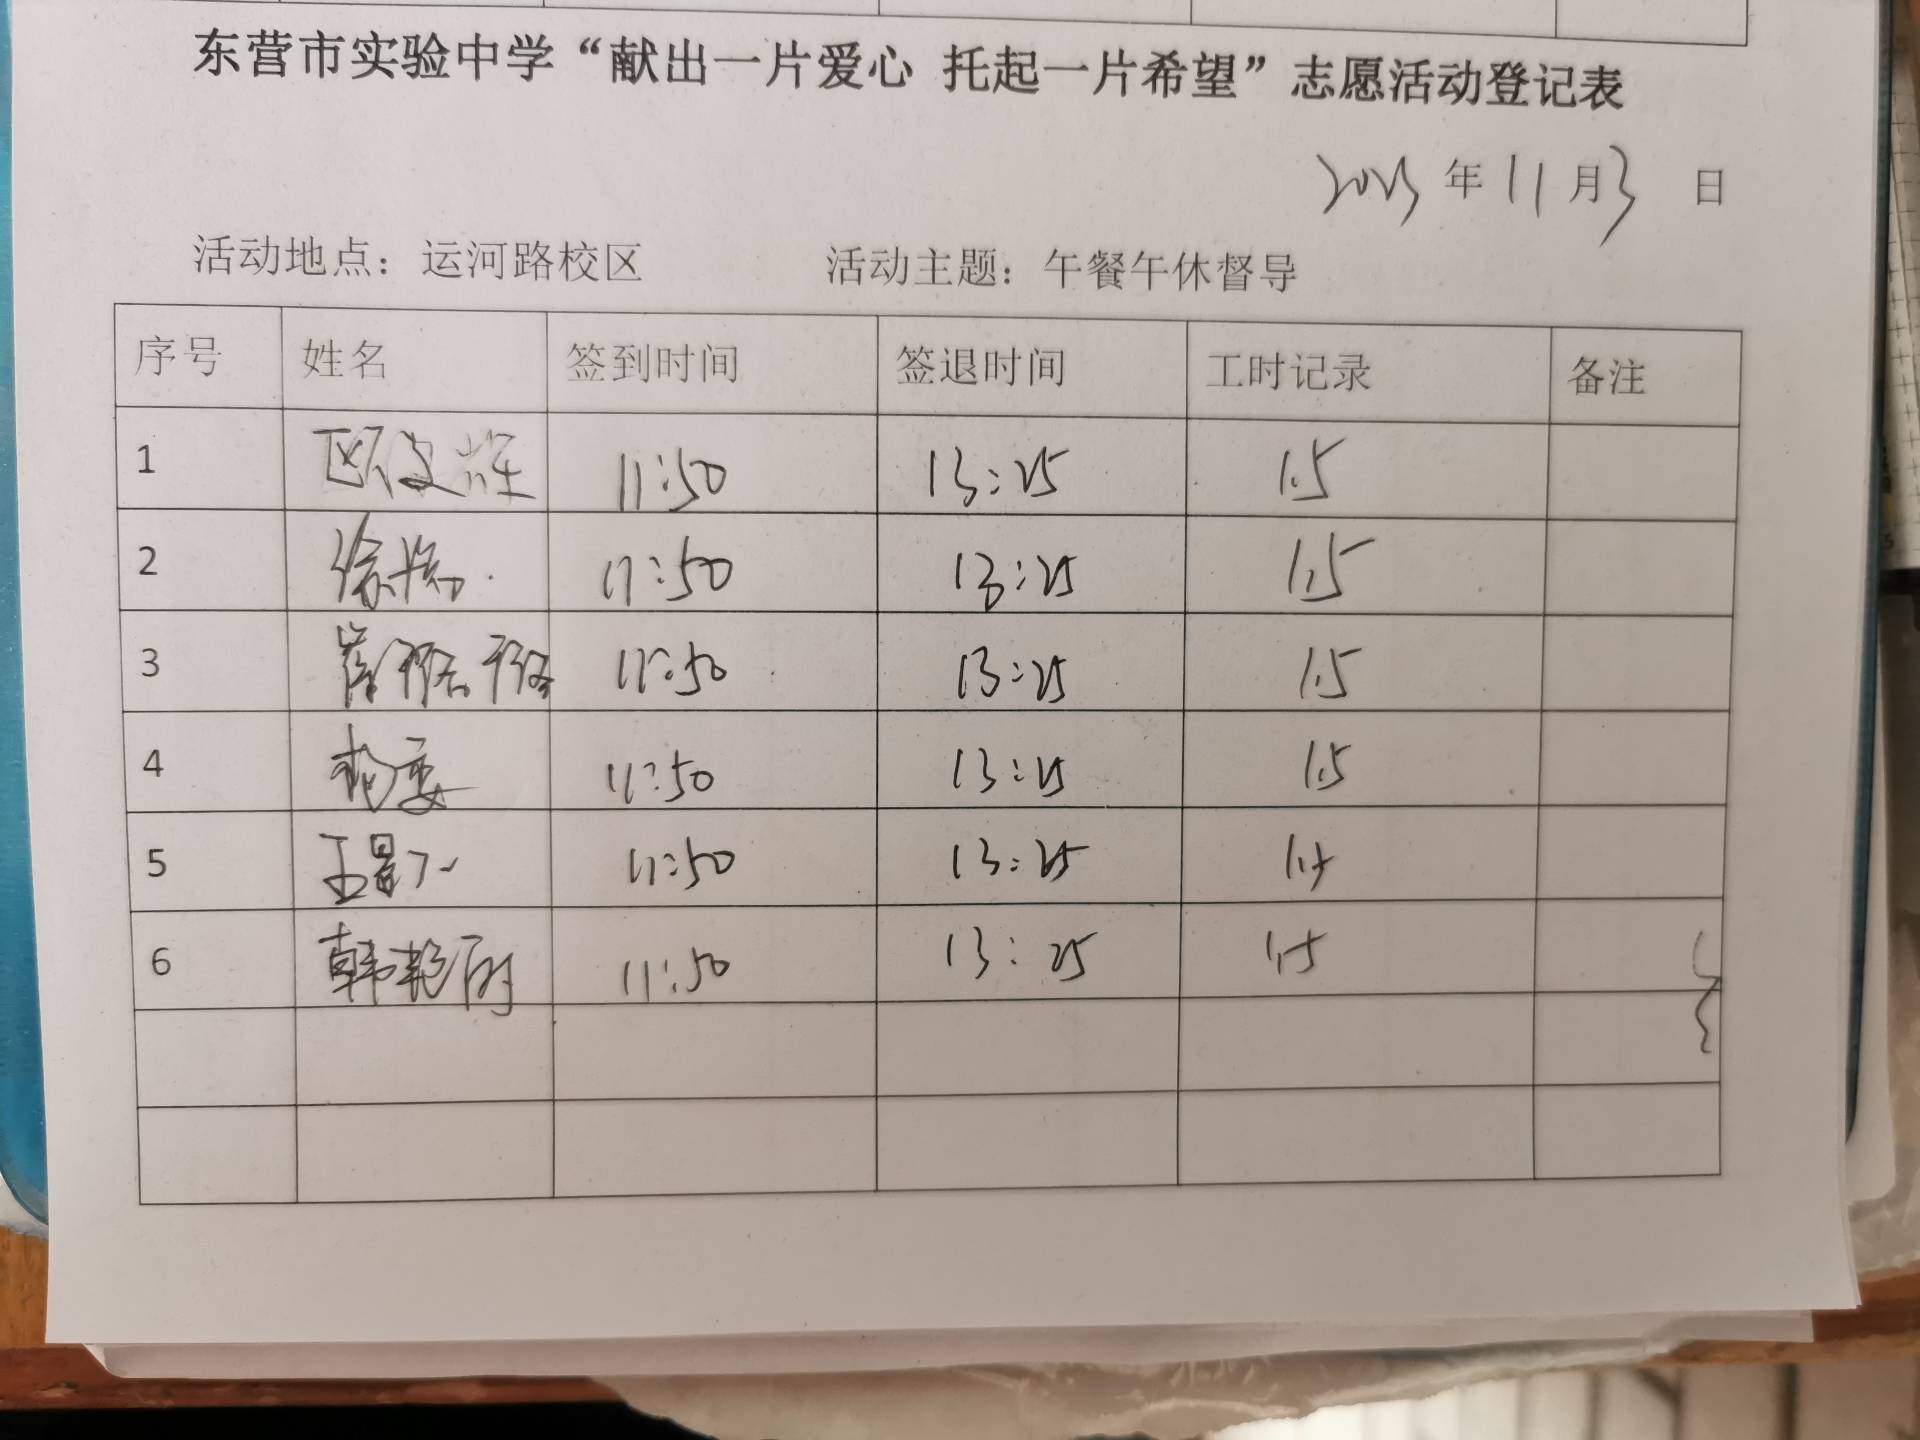 东营市实验中学“献出一片爱心 托起一片希望”志愿活动登记表
2023年11月3日
活动地点：运河路校区 活动主题：午餐午休督导
序号 姓名 签到时间 签退时间 工时记录 备注
1 11:50 13:25 1.5
2 11:50 13:25 1.5
3 11:50 13:25 1.5
4 11:50 13:25 1.5
5 11:50 13:25 1.5
6 韩艳丽 11:50 13:25 1.5